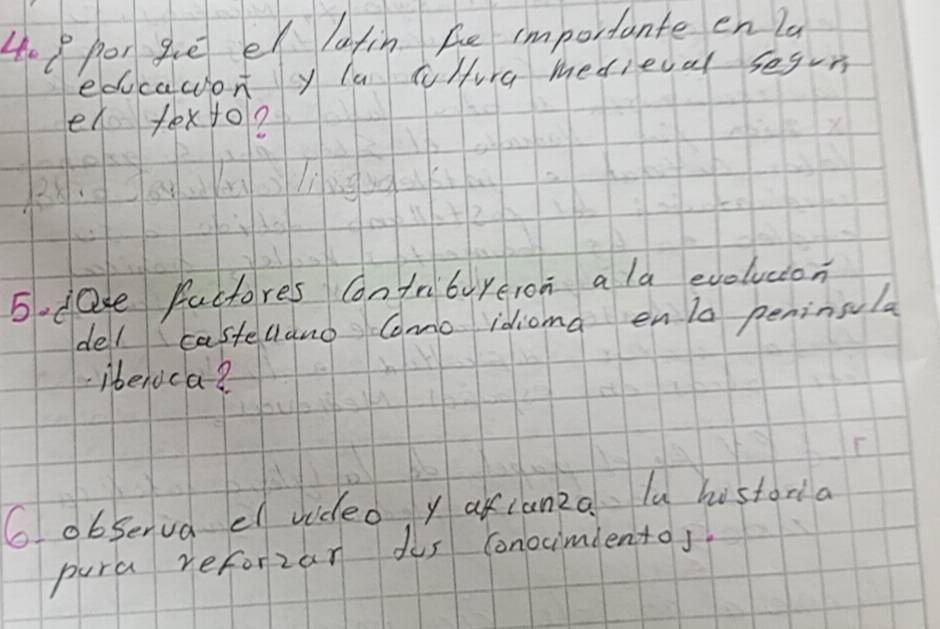 4. ¿por qué el latin fue importante en la
educación y la cultura medieval segun
el texto?
5. ¿Que factores contribuyerón a la evolución
del castellano como idioma en la peninsula
iberica?
6. observa el video y afianza la historia
para reforzar tus conocimientos.